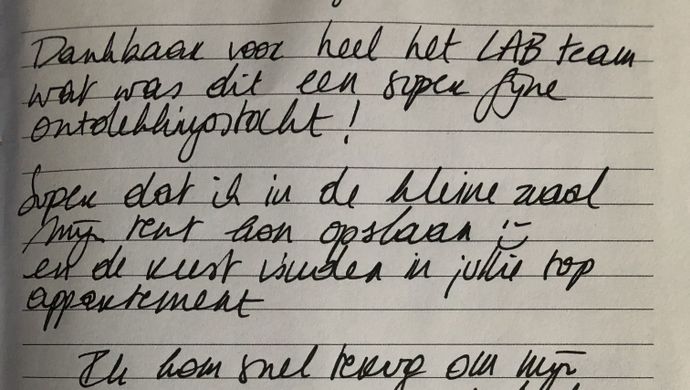 Dankbaar voor heel het LAB team
wat was dit een super fijne
ontdekkingstocht!
Super dat ik in de kleine zaal
mijn tent kon opslaan :-
en de rust vinden in jullie top
appartement
Ik kom snel terug om mijn